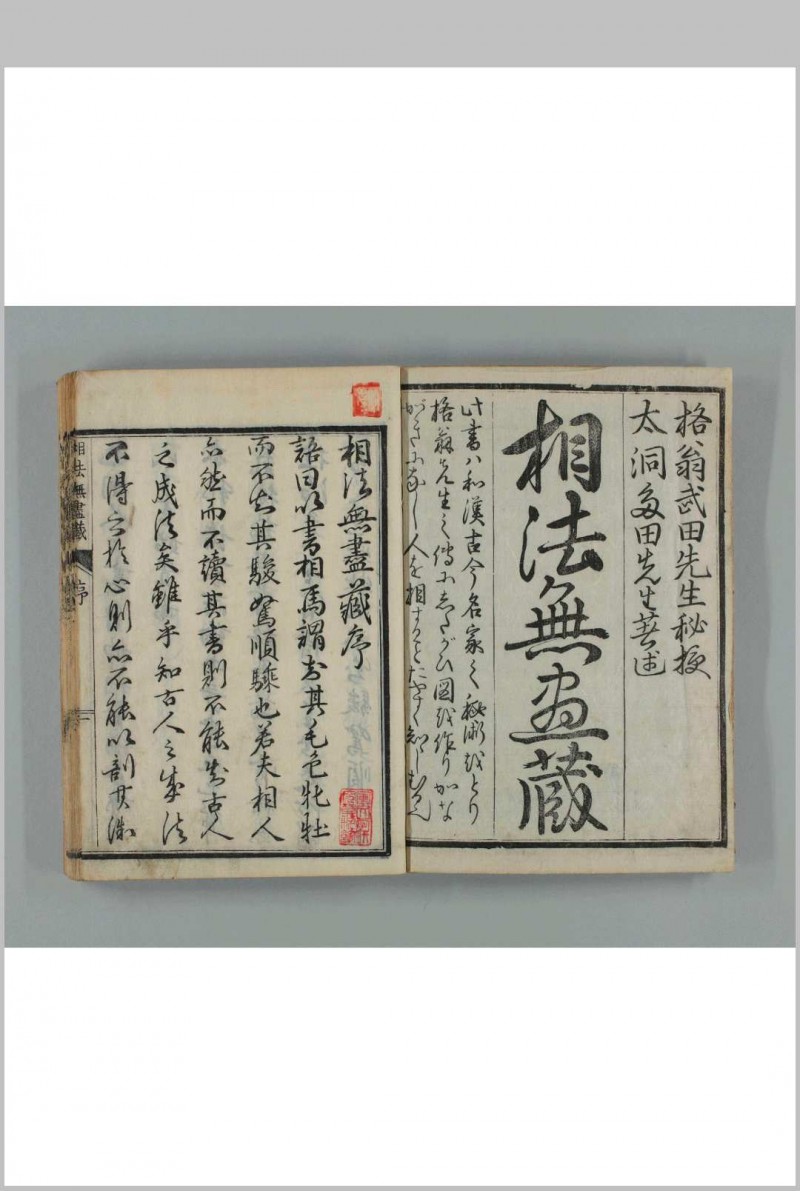 格翁武田先生秘授
太洞多田先生著述
相法無尽蔵
此書ハ和漢古今名家之秘術をとり
格翁先生之傳にしたがひ図を作りかな
がきになし人を相することたやすく知しむる
相法無盡藏序
語曰以書相馬謂知其毛色牝牡
而不知其駿駑順騄也若夫相人
亦然而不讀其書則不能知古人
之成法矣雖乎知古人之成法
不得之於心則亦不能以剖其
相法無盡藏
序